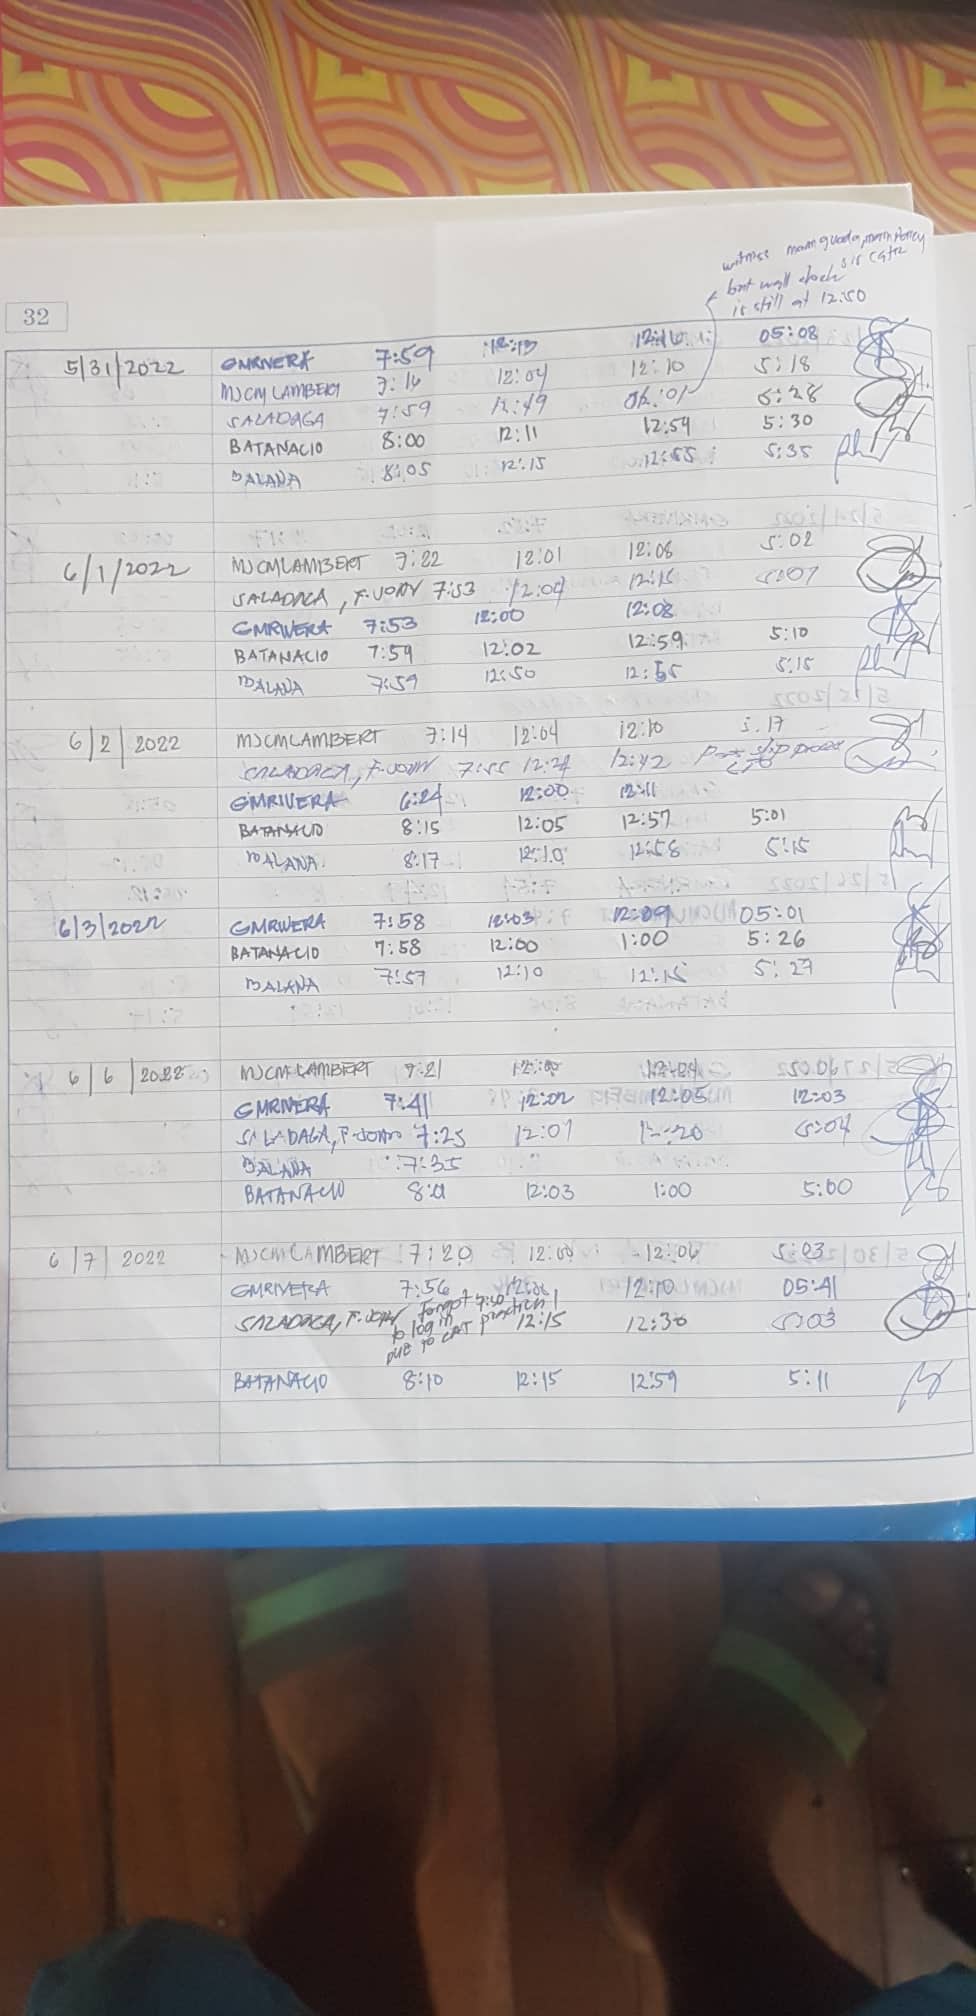 witness mam
but wall clock sir
is still at 12:50
32
5/31/2022 GMRIVERA 7:59 12:13 12:16 05:08
MJCMLAMBERT 7:16 12:04 12:10 5:18
SALADAGA 7:59 12:49 5:28
BATANACIO 8:00 12:11 12:59 5:30
BALANA 8:05 12:15 12:55 5:35
6/1/2022 MJCMLAMBERT 7:22 12:01 12:08 5:02
SALADAGA, F. JOHN 7:53 12:04 12:15 5:07
GMRIVERA 7:53 12:00 12:08
BATANACIO 7:59 12:02 12:59 5:10
BALANA 7:59 12:50 12:55 5:15
6/2/2022 MJCMLAMBERT 7:14 12:04 12:10 5:17
SALADAGA, F. JOHN 7:55 12:27 12:42
GMRIVERA 6:24 12:00 12:11
BATANACIO 8:15 12:05 12:57 5:01
BALANA 8:17 12:10 12:58 5:15
6/3/2022 GMRIVERA 7:58 12:03 12:09 05:01
BATANACIO 7:58 12:00 1:00 5:26
BALANA 7:57 12:10 12:15 5:27
6/6/2022 MJCMLAMBERT 7:21
GMRIVERA 7:41 12:02 12:05 12:03
SALADAGA, F. JOHN 7:25 12:01 5:04
BALANA 7:35
BATANACIO 8:01 12:03 1:00 5:00
6/7/2022 MJCMLAMBERT 7:20 12:00 12:06 5:03
GMRIVERA 7:56 12:06 12:10 05:41
SALADAGA, F. JOHN forgot 7:50 to log in due to CAT practice! 12:15 12:30 5:03
BATANACIO 8:10 12:15 12:59 5:11